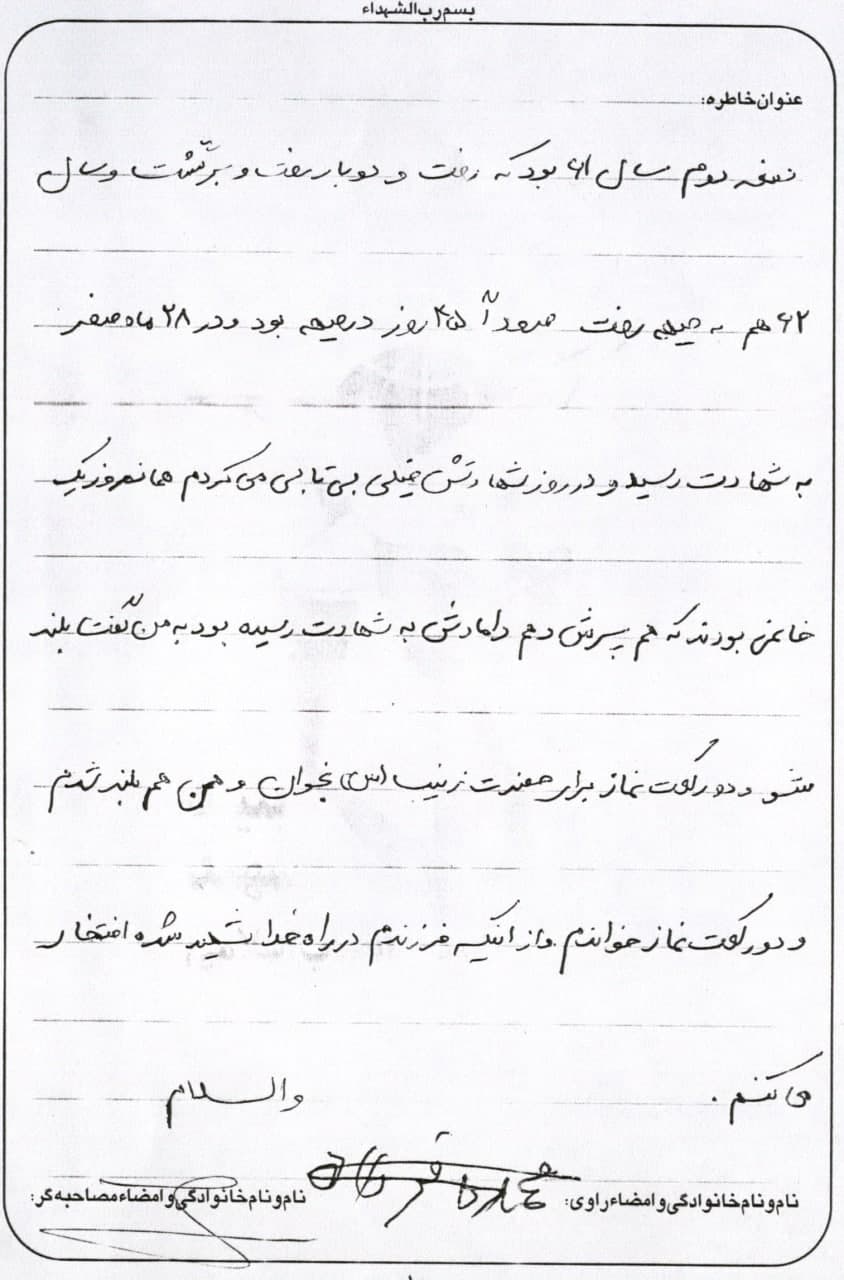 بسم رب الشهداء
عنوان خاطره:
نصفه دوم سال ۶۱ بود که رفت و دوبار رفت و برگشت و سال
۶۲ هم به جبهه رفت حدود آ ۴۵ روز در جبهه بود و در ۲۸ ماه صفر
به شهادت رسید و در روز شهادتش خیلی بی تابی می کردم همانروز یک
خانمی بودند که هم پسرش و هم دامادش به شهادت رسیده بود به من گفت بلند
شو و دو رکعت نماز برای حضرت زینب (س) بخوان و من هم بلند شدم
و دو رکعت نماز خواندم و از اینکه فرزندم در راه خدا شهید شده افتخار
می کنم .
والسلام
نام و نام خانوادگی و امضاء راوی:
نام و نام خانوادگی و امضاء مصاحبه گر: